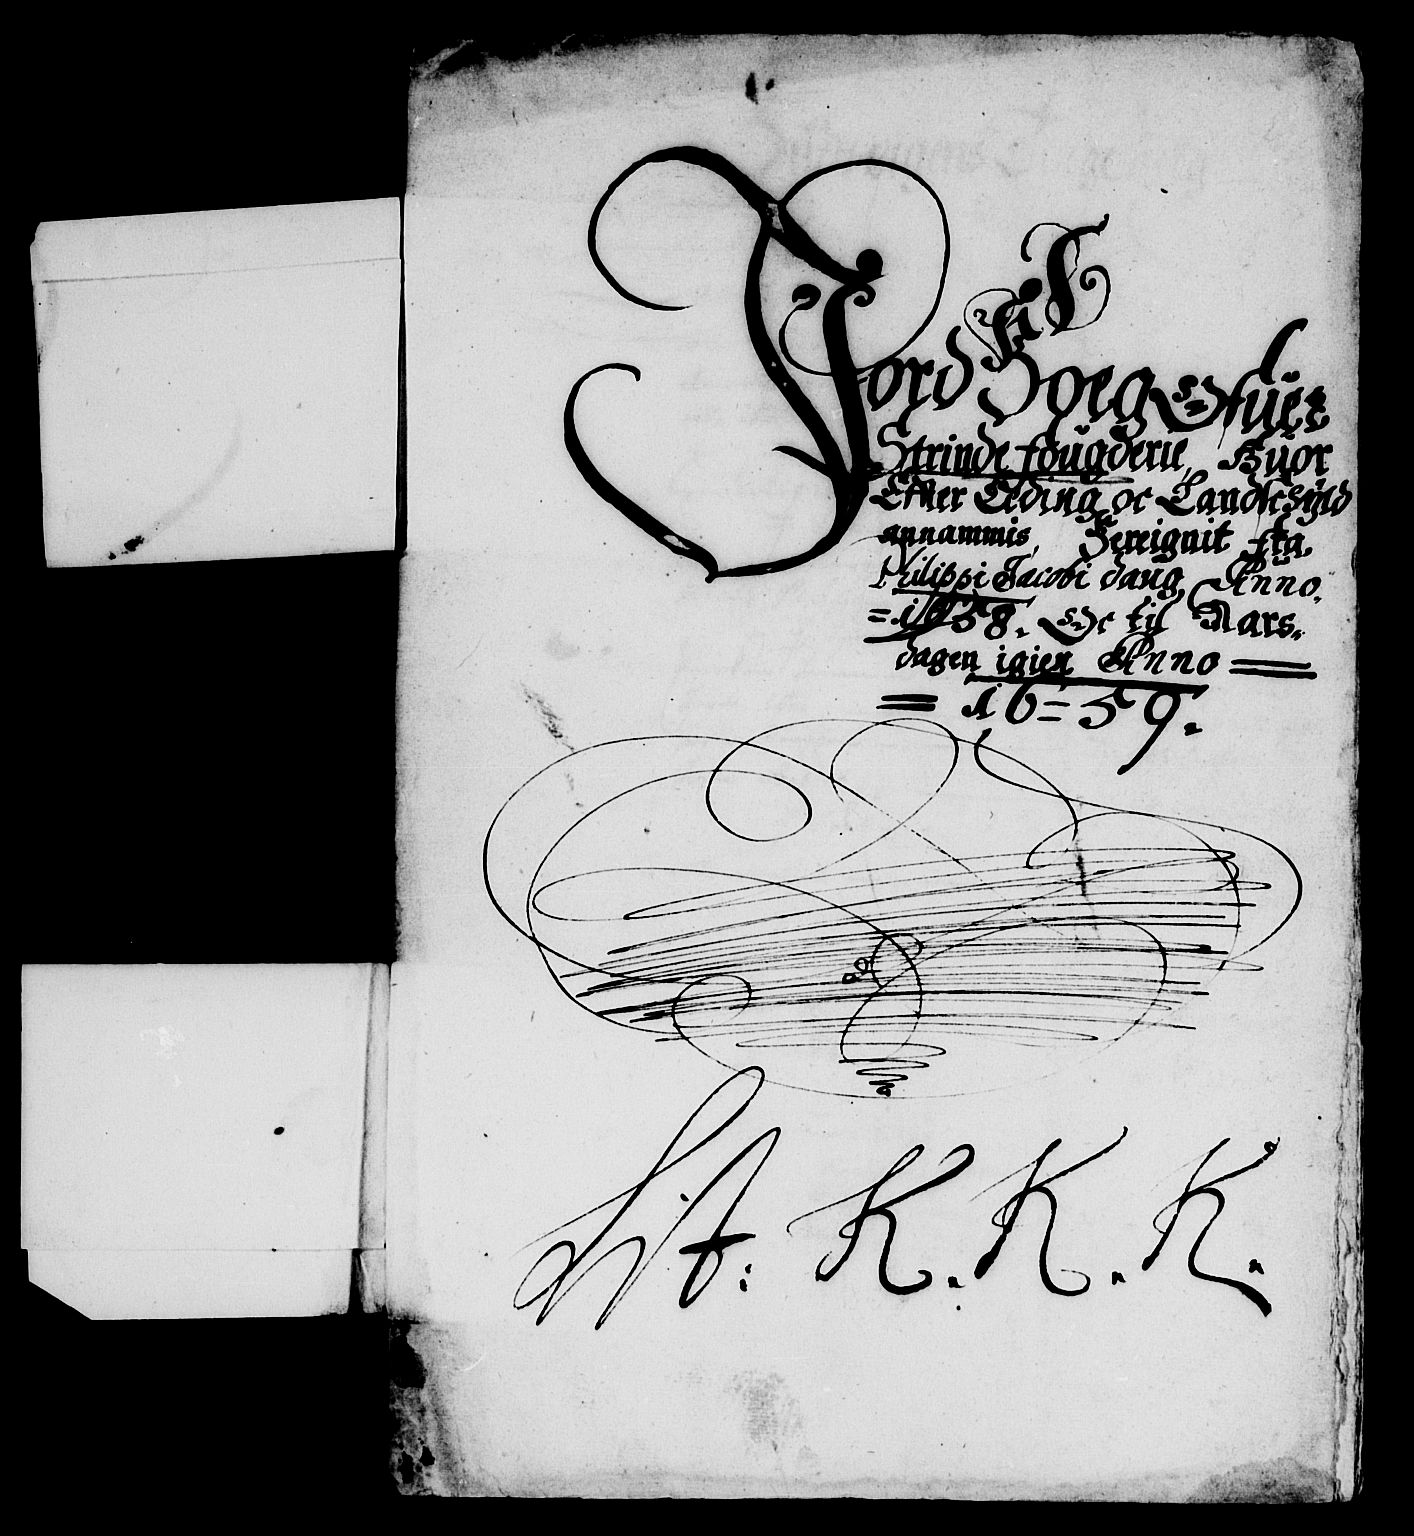 Jord Boeg Ofuer
Strinde fougderie, Huor
Efther Leding oc Landschyld
annammis, Bereignit fra
Philippi Jacobi daug Anno.
=1658. Oc til Aars.
dagen igien Anno =
= 16=59.
Lit: K. K. K.